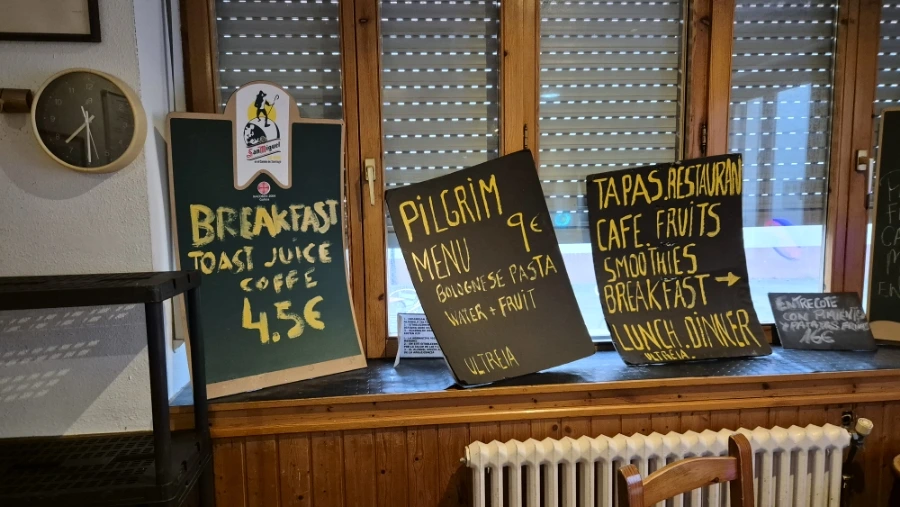 San Miguel
BREAKFAST
TOAST JUICE
COFFE
4.5€
PILGRIM
9€
MENU
BOLOGNESE PASTA
WATER + FRUIT
ULTREIA
TAPAS.RESTAURAN
CAFE FRUITS
SMOOTHIES
BREAKFAST →
LUNCH.DINNER
ULTREIA
ENTRECOTE
CON PIMIENTOS
+ PATATAS
16€